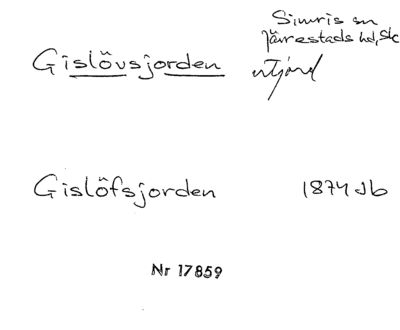 Simris sn
Järrestads hd, Sk
Gislövsjorden utjord
Gislöfsjorden 1874 Jb
Nr 17859